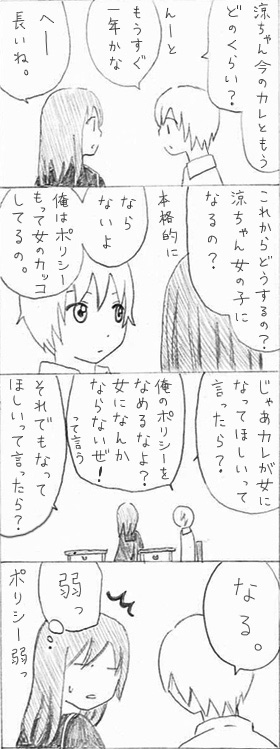 涼ちゃん今のカレともう
どのくらい？
んーと
もうすぐ
一年かな
へー
長いね。
これからどうするの？
涼ちゃん女の子に
なるの？
本格的に
なら
ないよ
俺はポリシー
もって女のカッコ
してるの。
じゃあカレが女に
なってほしいって
言ったら？
俺のポリシーを
なめるなよ？
女になんか
ならないぜ！
って言う
それでもなって
ほしいって言ったら？
なる。
弱っ
ポリシー弱っ